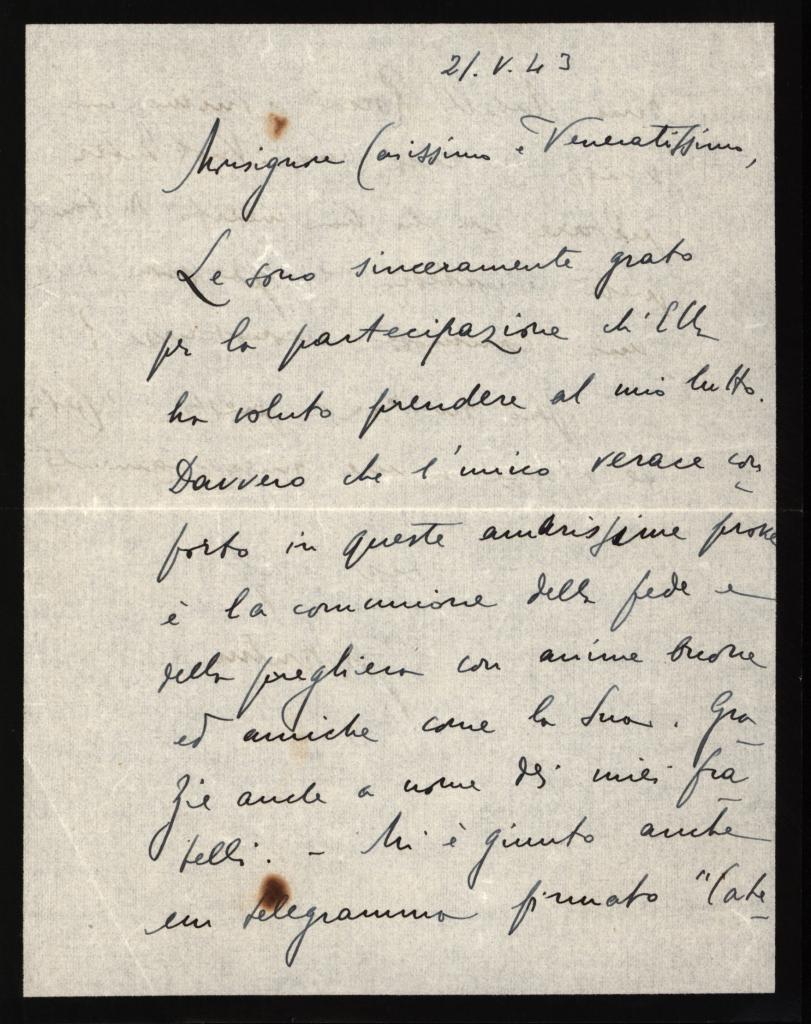 21.V.43
Monsignore Carissimo e Veneratissimo,
Le sono sinceramente grato
per la partecipazione ch'Ella
ha voluto prendere al mio lutto.
Davvero che l'unico verace con-
forto in queste amarissime prove
è la comunione della fede e
della preghiera con anime buone
ed amiche come la Sua. Gra-
zie anche a nome dei miei fra-
telli. - Mi è giunto anche
un telegramma firmato "Cate-